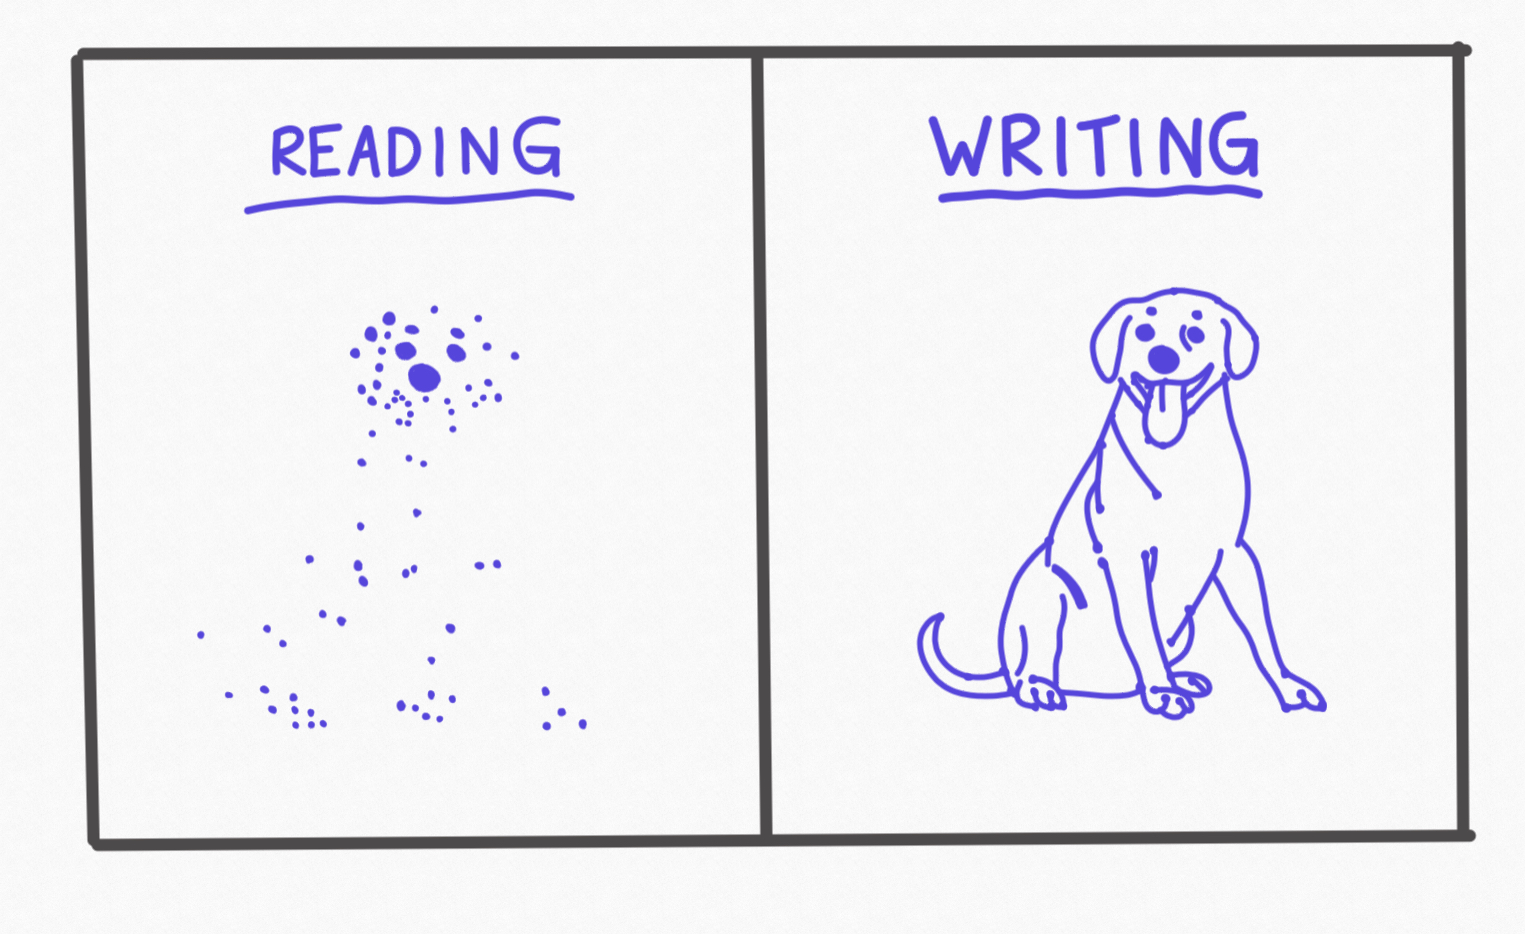 READING
WRITING